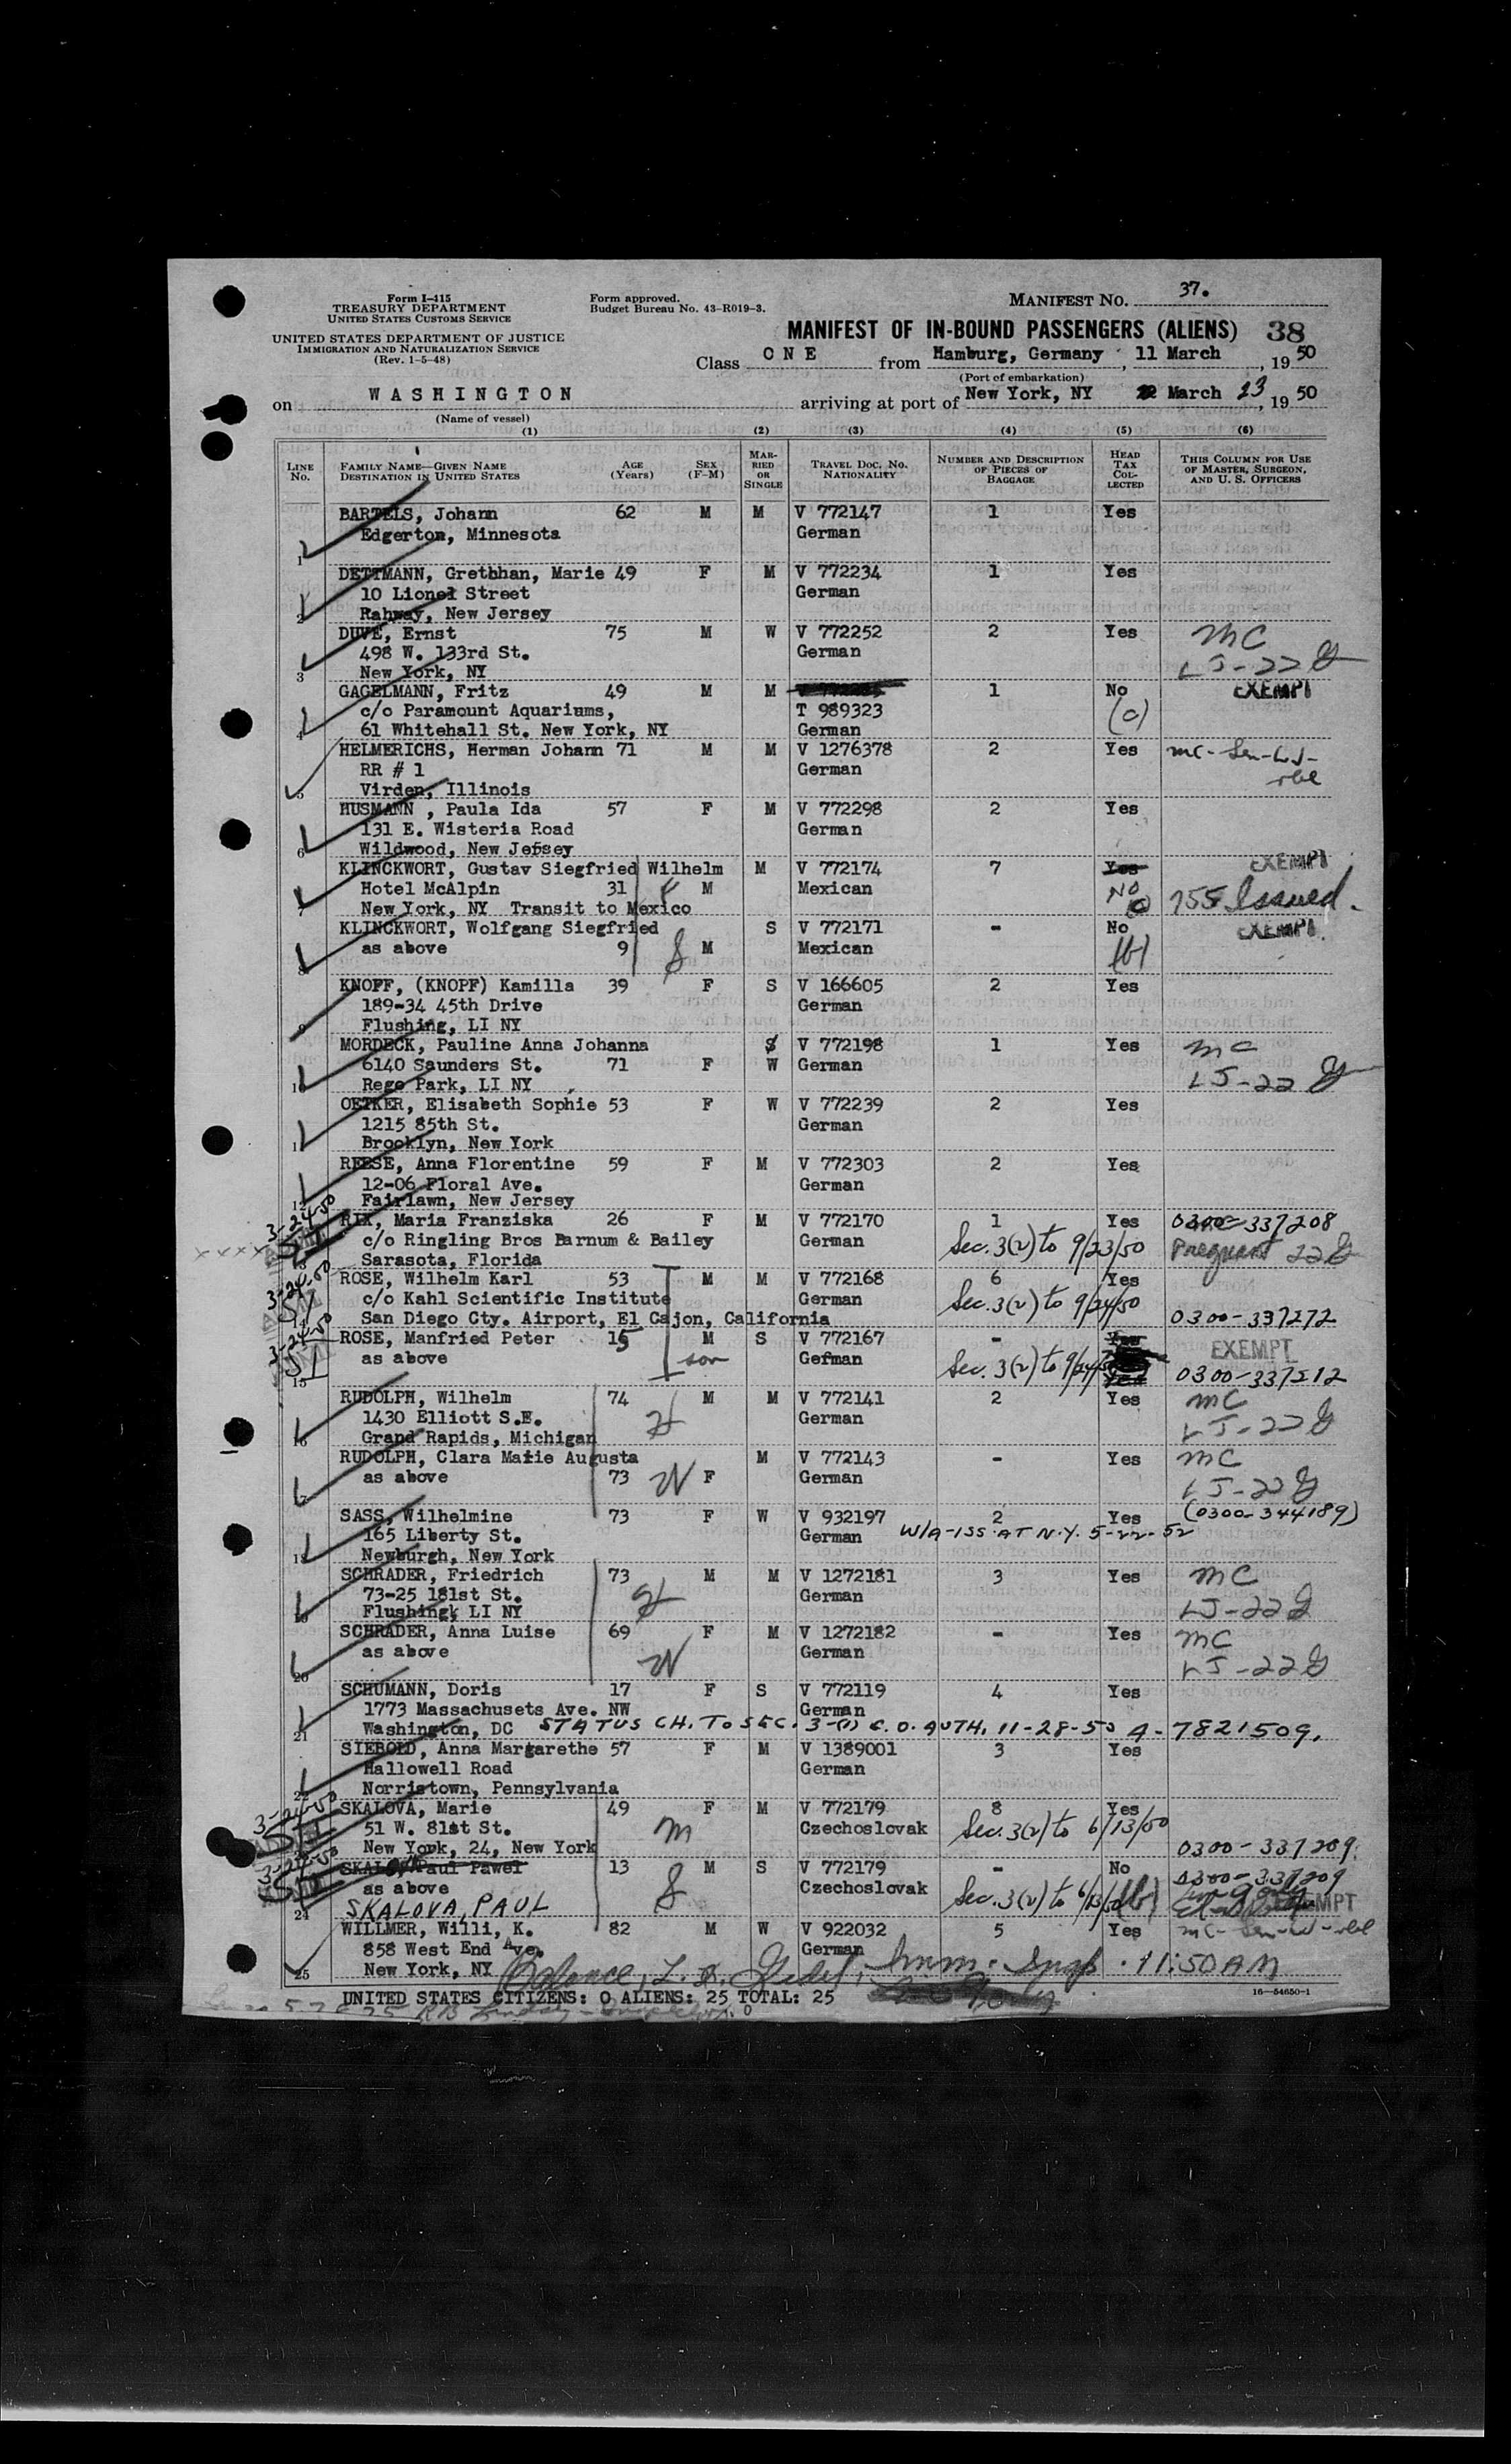 Form I-415
TREASURY DEPARTMENT
UNITED STATES CUSTOMS SERVICE
UNITED STATES DEPARTMENT OF JUSTICE
IMMIGRATION AND NATURALIZATION SERVICE
(Rev. 1-5-48)
Form approved.
Budget Bureau No. 43-R019-3.
MANIFEST NO. 37.
MANIFEST OF IN-BOUND PASSENGERS (ALIENS) 38
Class ONE from Hamburg, Germany, 11 March, 1950
(Port of embarkation)
on WASHINGTON arriving at port of New York, NY March 23, 1950
(Name of vessel)
(1) (2) (3) (4) (5) (6)
LINE NO. FAMILY NAME—GIVEN NAME DESTINATION IN UNITED STATES AGE (Years) SEX (F-M) MARRIED OR SINGLE TRAVEL DOC. NO. NATIONALITY NUMBER AND DESCRIPTION OF PIECES OF BAGGAGE HEAD TAX COLLECTED THIS COLUMN FOR USE OF MASTER, SURGEON, AND U. S. OFFICERS
BARTELS, Johann 62 M M V 772147 1 Yes
1 Edgerton, Minnesota German
DETTMANN, Grethhan, Marie 49 F M V 772234 1 Yes
10 Lionel Street German
2 Rahway, New Jersey
DUVE, Ernst 75 M W V 772252 2 Yes MC
498 W. 133rd St. German LJ-22
3 New York, NY
GAGELMANN, Fritz 49 M M 1 No EXEMPT
c/o Paramount Aquariums, T 989323 (c)
4 61 Whitehall St. New York, NY German
HELMERICHS, Herman Johann 71 M M V 1276378 2 Yes MC-Sen-LJ-
RR # 1 German
5 Virden, Illinois
HUSMANN , Paula Ida 57 F M V 772298 2 Yes
131 E. Wisteria Road German
6 Wildwood, New Jersey
KLINCKWORT, Gustav Siegfried Wilhelm M V 772174 7 Yes EXEMPT
Hotel McAlpin 31 M Mexican No 755 Issued.
7 New York, NY Transit to Mexico
KLINCKWORT, Wolfgang Siegfried S V 772171 - No EXEMPT
8 as above 9 M Mexican (b)
KNOFF, (KNOPF) Kamilla 39 F S V 166605 2 Yes
189-34 45th Drive German
9 Flushing, LI NY
MORDECK, Pauline Anna Johanna S V 772198 1 Yes MC
6140 Saunders St. 71 F W German LJ-22
10 Rego Park, LI NY
OETKER, Elisabeth Sophie 53 F W V 772239 2 Yes
1215 85th St. German
11 Brooklyn, New York
REESE, Anna Florentine 59 F M V 772303 2 Yes
12-06 Floral Ave. German
12 Fairlawn, New Jersey
3-24-50 RIX, Maria Franziska 26 F M V 772170 1 Yes 0300-337208
xxxx SI c/o Ringling Bros Barnum & Bailey German Sec. 3(2) to 9/23/50 Pregnant 22
Sarasota, Florida
3-24-50 ROSE, Wilhelm Karl 53 M M V 772168 6 Yes
SI c/o Kahl Scientific Institute German Sec. 3(2) to 9/24/50
14 San Diego Cty. Airport, El Cajon, California 0300-337272
3-24-50 ROSE, Manfried Peter 15 M S V 772167 - Yes EXEMPT
SI as above son Gefman Sec. 3(2) to 9/24/50 0300-337212
15
RUDOLPH, Wilhelm 74 M M V 772141 2 Yes MC
1430 Elliott S.E. H German LJ-22
16 Grand Rapids, Michigan
RUDOLPH, Clara Marie Augusta M V 772143 - Yes MC
17 as above 73 W F German LJ-22
SASS, Wilhelmine 73 F W V 932197 2 Yes (0300-344189)
165 Liberty St. German W/A-ISS. AT N.Y. 5-22-52
18 Newburgh, New York
SCHRADER, Friedrich 73 M M V 1272181 3 Yes MC
73-25 181st St. H German LJ-22
19 Flushing, LI NY
SCHRADER, Anna Luise 69 F M V 1272182 - Yes MC
20 as above W German LJ-22
SCHUMANN, Doris 17 F S V 772119 4 Yes
1773 Massachusets Ave. NW German
21 Washington, DC STATUS CH. TO SEC. 3-(1) C.O. AUTH. 11-28-50 A-7821509.
SIEBOLD, Anna Margarethe 57 F M V 1389001 3 Yes
Hallowell Road German
22 Norristown, Pennsylvania
3-24-50 SKALOVA, Marie 49 F M V 772179 8 Yes
SI 51 W. 81st St. M Czechoslovak Sec. 3(2) to 6/13/50
New York, 24, New York 0300-337209
3-24-50 SKALOVA Paul Pawel 13 M S V 772179 - No 0300-337209
SI as above Czechoslovak Sec. 3(2) to 6/13/50 (b) EXEMPT
24 SKALOVA, PAUL
WILLMER, Willi, K. 82 M W V 922032 5 Yes MC-Sen-LJ-
858 West End Ave. German
25 New York, NY Balance, Imm. Insp. 11:50 AM
UNITED STATES CITIZENS: 0 ALIENS: 25 TOTAL: 25
16—54650-1